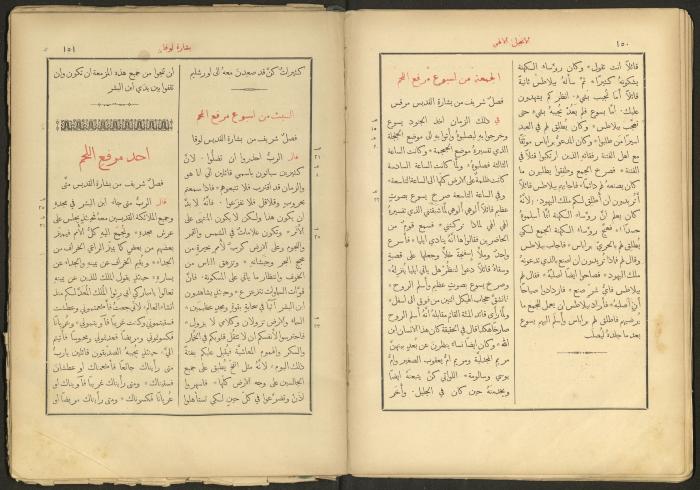 ١٥٠
الانجيل الالهي
قائلاً أنت تقول * وكان رؤساء الكهنة
يشكونه كثيرًا * ثم سأله بيلاطس ثانيةً
قائلاً أما تجيب بشيء. انظر كم يشهدون
عليك. أما يسوع فلم يعد يجيب بشيء حتى
تعجب بيلاطس * وكان يطلق لهم في العيد
اسيرًا من طلبوا * وكان المدعو براباس موثقًا
مع اهل الفتنة رفقائه الذين ارتكبوا قتلاً في
الفتنة * فصرخ الجمع وطفقوا يطلبون ما
كان يصنعه لهم دائمًا * فاجابهم بيلاطس قائلاً
أتريدون ان أطلق لكم ملك اليهود * لانه
كان يعلم ان رؤساء الكهنة انما أسلموه
حسدًا * فهيج الرؤساء الكهنة الجمع ان
يطلق لهم بالحري براباس * فاجاب بيلاطس
وقال لهم فماذا تريدون ان اصنع بالذي تدعونه
ملك اليهود * فصاحوا ايضًا اصلبه * فقال لهم
بيلاطس فأي شر صنع * فازدادوا صياحًا
اصلبه * فأراد بيلاطس ان يعمل للجمع ما
يرضيهم فاطلق لهم براباس وأسلم اليهم يسوع
بعد ما جلده ليصلب
الجمعة من اسبوع مرفع اللحم
فصل شريف من بشارة القديس مرقس
في ذلك الزمان اخذ الجنود يسوع
وخرجوا به ليصلبوه وأتوا به الى موضع الجلجلة
الذي تفسيره موضع الجمجمة * وكانت الساعة
الثالثة فصلبوه * ولما كانت الساعة السادسة
كانت ظلمة على الارض كلها الى الساعة التاسعة *
وفي الساعة التاسعة صرخ يسوع بصوت
عظيم قائلاً ألوهي ألوهي لما شبقتني الذي تفسيره
الهي الهي لماذا تركتني * فسمع قوم من
الحاضرين فقالوا ها انه ينادي ايليا * فأسرع
واحد وملأ اسفنجة خلاً وجعلها على قصبةٍ
وسقاه قائلاً دعوا لننظر هل يأتي ايليا ينزله *
وصرخ يسوع بصوتٍ عظيم وأسلم الروح *
فانشق حجاب الهيكل اثنين من فوق الى اسفل *
ولما رأى قائد المئة القائم مقابله انه أسلم الروح
صارخًا هكذا قال في الحقيقة كان هذا الانسان ابن
الله * وكان ايضًا نساء ينظرن عن بعدٍ بينهنّ
مريم المجدلية ومريم ام يعقوب الصغير وام
يوسي وسالومة * اللواتي كنّ يتبعنه ايضًا
ويخدمنه حين كان في الجليل. وأُخر
بشارة لوقا
١٥١
كثيرات كنّ قد صعدن معه الى اورشليم
السبت من اسبوع مرفع اللحم
فصل شريف من بشارة القديس لوقا
قال الرب احذروا ان تضلوا. لان
كثيرين سيأتون باسمي قائلين اني انا هو
والزمان قد اقترب فلا تتبعوهم * فاذا سمعتم
بحروب وقلاقل فلا تفزعوا. فانه لا بد
ان يكون هذا ولكن لا يكون المنتهى على
الأثر * وتكون علامات في الشمس والقمر
والنجوم وعلى الارض كرب لأمم بحيرة من
عجيج البحر وجيشانه * وتزهق الناس من
الخوف وانتظار ما يأتي على المسكونة. فان
قوات السماوات تتزعزع * وحينئذٍ يشاهدون
ابن البشر آتيًا في سحابةٍ بقوةٍ ومجدٍ عظيمين *
السماء والارض تزولان وكلامي لا يزول *
فاحترسوا لانفسكم ان لا تثقل قلوبكم في الخمار
والسكر والهموم المعاشية فيقبل عليكم بغتةً
ذلك اليوم * لانه مثل الفخ يطبق على جميع
الجالسين على وجه الارض كلها * فاسهروا
اذن وتضرعوا في كل حين لكي تستأهلوا
ان تنجوا من جميع هذه المزمعة ان تكون وان
تقفوا بين يدي ابن البشر
احد مرفع اللحم
فصل شريف من بشارة القديس متى
قال الرب متى جاء ابن البشر في مجده
وجميع الملائكة القديسين معه فحينئذٍ يجلس على
عرش مجده * وتجمع اليه كل الأمم فيميز
بعضهم من بعض كما يميز الراعي الخراف من
الجداء * ويقيم الخراف عن يمينه والجداء عن
يساره * حينئذٍ يقول الملك للذين عن يمينه
تعالوا يا مباركي ابي رثوا الملك المعد لكم منذ
انشاء العالم * لاني جعت فأطعمتموني وعطشت
فسقيتموني وكنت غريبًا فآويتموني * وعريانًا
فكسوتموني ومريضًا فعدتموني ومحبوسًا فأتيتم
اليّ * حينئذٍ يجيبه الصديقون قائلين يا رب
متى رأيناك جائعًا فأطعمناك او عطشان
فسقيناك * ومتى رأيناك غريبًا فآويناك او
عريانًا فكسوناك * ومتى رأيناك مريضًا او